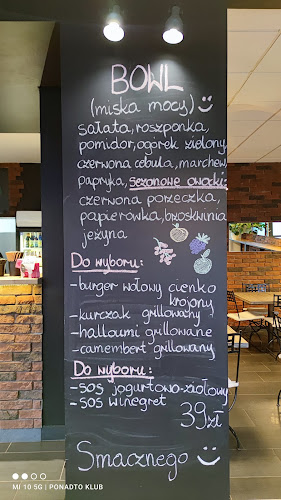 BOWL
(miska mocy)
sałata, roszponka,
pomidor, ogórek zielony,
czerwona cebula, marchew,
papryka, sezonowe owocki:
czerwona porzeczka,
papierówka, brzoskwinia,
jeżyna
Do wyboru:
- burger wołowy cienko
krojony
- kurczak grillowany
- halloumi grillowane
- camembert grillowany
Do wyboru:
- sos jogurtowo-ziołowy
- sos winegret
39zł
Smacznego
MI 10 5G | PONADTO KLUB